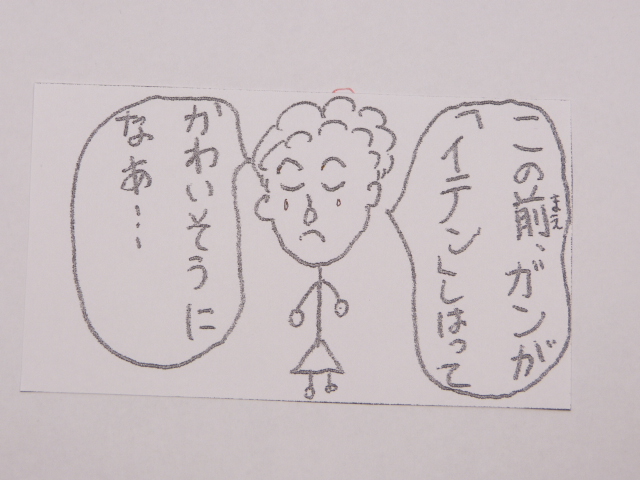 この前、ガンが
まえ
「イテン」しはって
かわいそうに
なあ…